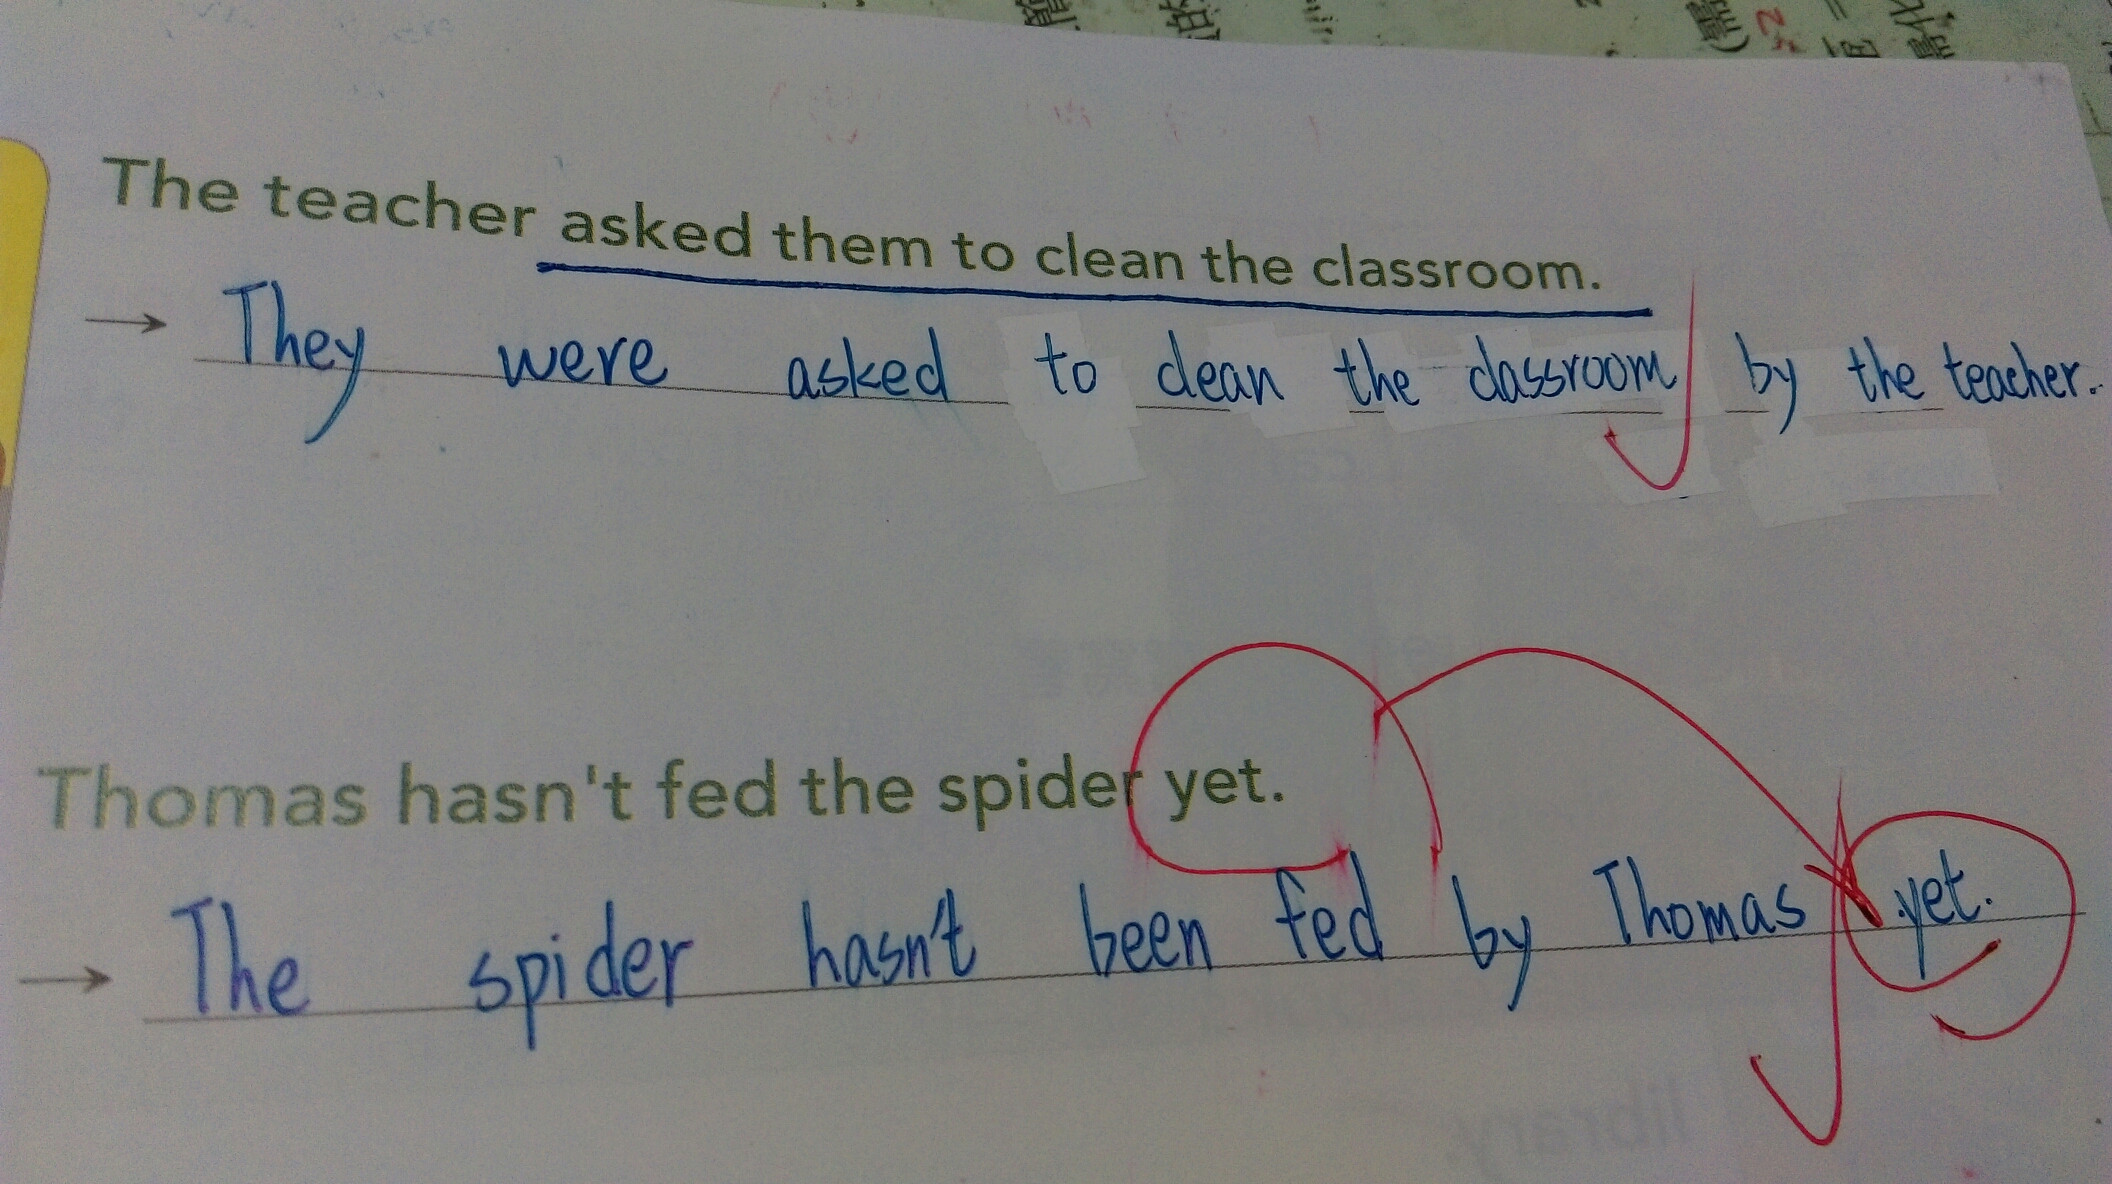 The teacher asked them to clean the classroom.
→ They were asked to clean the classroom by the teacher.
Thomas hasn't fed the spider yet.
→ The spider hasn't been fed by Thomas yet.